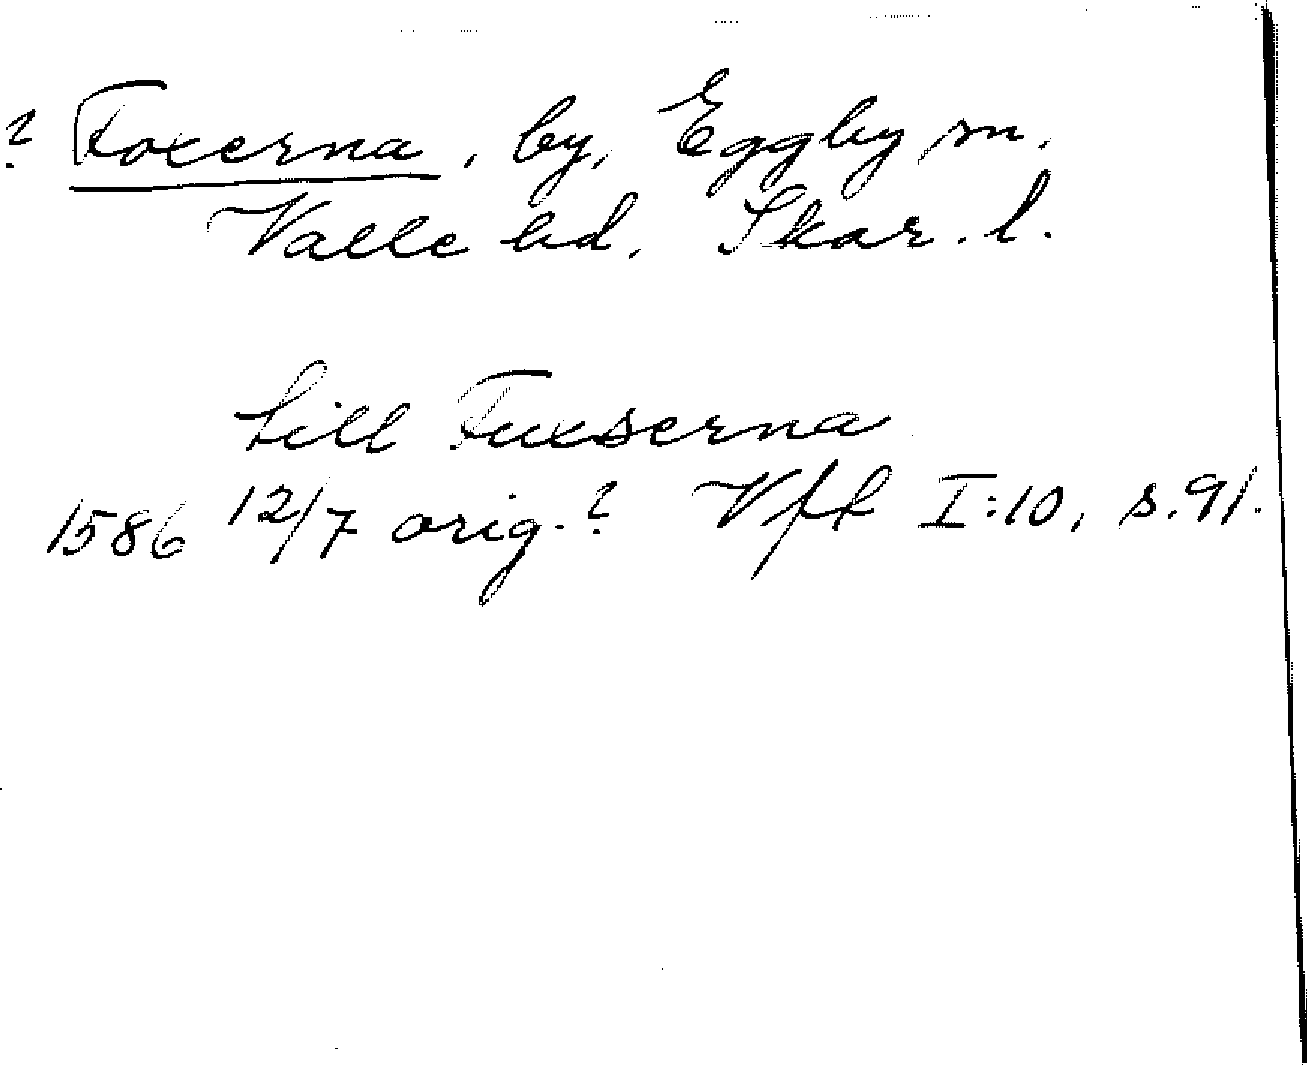 ? Foxerna, by, Eggby sn.
Valle hd. Skar. l.
till Fuxserna
1586 12/7 orig.? Vff I:10, s. 91.